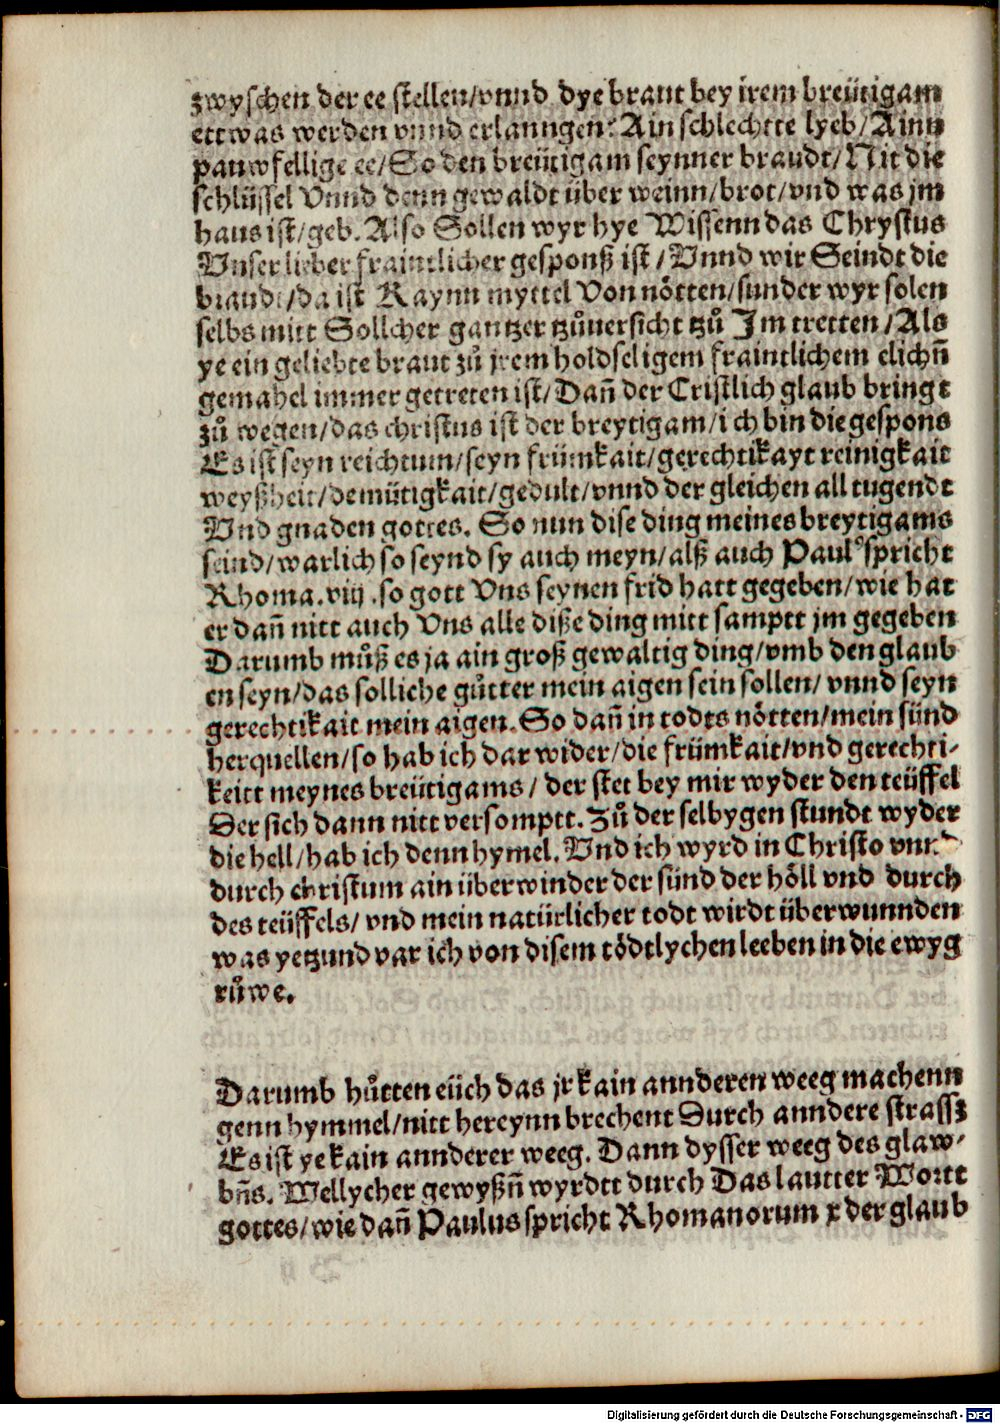 zwyschen der ee stellen/vnnd dye braut bey irem breütigam
ettwas werden vnnd erlanngen? Ain schlechtte lyeb/Ainn
pauwfellige ee/So den breütigam seynner braudt/Nit die
schlüssel Vnnd denn gewaldt über weinn/brot/vnd was jm
haus ist/geb. Also Sollen wyr hye Wissenn das Chrystus
Vnser lieber fraintlicher gesponß ist/Vnnd wir Seindt die
braudt/da ist Kaynn myttel Von nötten/sunder wyr solen
selbs mitt Sollcher gantzer tzůuersicht tzů Im tretten/Als
ye ein geliebte braut zů jrem holdseligem fraintlichem elichñ
gemahel immer getreten ist/Dañ der Cristlich glaub bringt
zů wegen/das christus ist der breytigam/ich bin die gespons
Es ist seyn reichtum/seyn frümkait/gerechtikayt reinigkait
weyßheit/demütigkait/gedult/vnnd der gleichen all tugendt
Vnd gnaden gottes. So nun dise ding meines breytigams
seind/warlich so seynd sy auch meyn/alß auch Paulꝰ spricht
Rhoma.viij.so gott Vns seynen frid hatt gegeben/wie hat
er dañ nitt auch Vns alle diße ding mitt samptt jm gegeben
Darumb můß es ja ain groß gewaltig ding/vmb den glaub
en seyn/das solliche gůtter mein aigen sein sollen/vnnd seyn
gerechtikait mein aigen. So dañ in todts nötten/mein sünd
herquellen/so hab ich dar wider/die frümkait/vnd gerechti-
keitt meynes breütigams/der stet bey mir wyder den teüffel
Der sich dann nitt versomptt. Zů der selbygen stundt wyder
die hell/hab ich denn hymel. Vnd ich wyrd in Christo vnnd
durch christum ain überwinder der sünd der höll vnd durch
des teüffels/vnd mein natürlicher todt wirdt überwunnden
was yetzund var ich von disem tödtlychen leeben in die ewyg
růwe.
Darumb hůtten eüch das jr kain annderen weeg machenn
genn hymmel/nitt hereynn brechent Durch anndere strassz
Es ist ye kain annderer weeg. Dann dysser weeg des glaw-
bñs. Wellycher gewyßñ wyrdtt durch Das lautter Wortt
gottes/wie dañ Paulus spricht Rhomanorum x der glaub
Digitalisierung gefördert durch die Deutsche Forschungsgemeinschaft - DFG